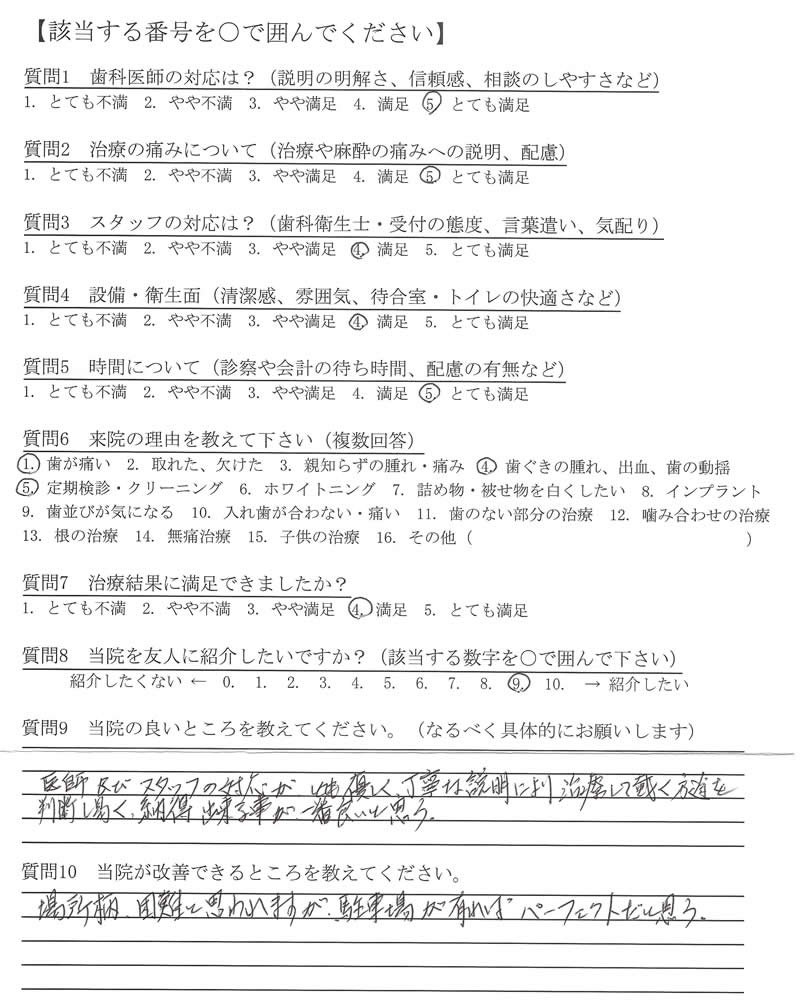 【該当する番号を○で囲んでください】
質問1 歯科医師の対応は？（説明の明解さ、信頼感、相談のしやすさなど）
1. とても不満 2. やや不満 3. やや満足 4. 満足 5. とても満足
質問2 治療の痛みについて（治療や麻酔の痛みへの説明、配慮）
1. とても不満 2. やや不満 3. やや満足 4. 満足 5. とても満足
質問3 スタッフの対応は？（歯科衛生士・受付の態度、言葉遣い、気配り）
1. とても不満 2. やや不満 3. やや満足 4. 満足 5. とても満足
質問4 設備・衛生面（清潔感、雰囲気、待合室・トイレの快適さなど）
1. とても不満 2. やや不満 3. やや満足 4. 満足 5. とても満足
質問5 時間について（診察や会計の待ち時間、配慮の有無など）
1. とても不満 2. やや不満 3. やや満足 4. 満足 5. とても満足
質問6 来院の理由を教えて下さい（複数回答）
1. 歯が痛い 2. 取れた、欠けた 3. 親知らずの腫れ・痛み 4. 歯ぐきの腫れ、出血、歯の動揺
5. 定期検診・クリーニング 6. ホワイトニング 7. 詰め物・被せ物を白くしたい 8. インプラント
9. 歯並びが気になる 10. 入れ歯が合わない・痛い 11. 歯のない部分の治療 12. 噛み合わせの治療
13. 根の治療 14. 無痛治療 15. 子供の治療 16. その他（ ）
質問7 治療結果に満足できましたか？
1. とても不満 2. やや不満 3. やや満足 4. 満足 5. とても満足
質問8 当院を友人に紹介したいですか？（該当する数字を○で囲んで下さい）
紹介したくない ← 0. 1. 2. 3. 4. 5. 6. 7. 8. 9. 10. → 紹介したい
質問9 当院の良いところを教えてください。（なるべく具体的にお願いします）
医師及びスタッフの対応が 優しく、丁寧な説明により 治療して戴く方途を
判断し易く、納得出来る事が一番良いと思う。
質問10 当院が改善できるところを教えてください。
場所柄、困難と思われますが、駐車場が有ればパーフェクトだと思う。